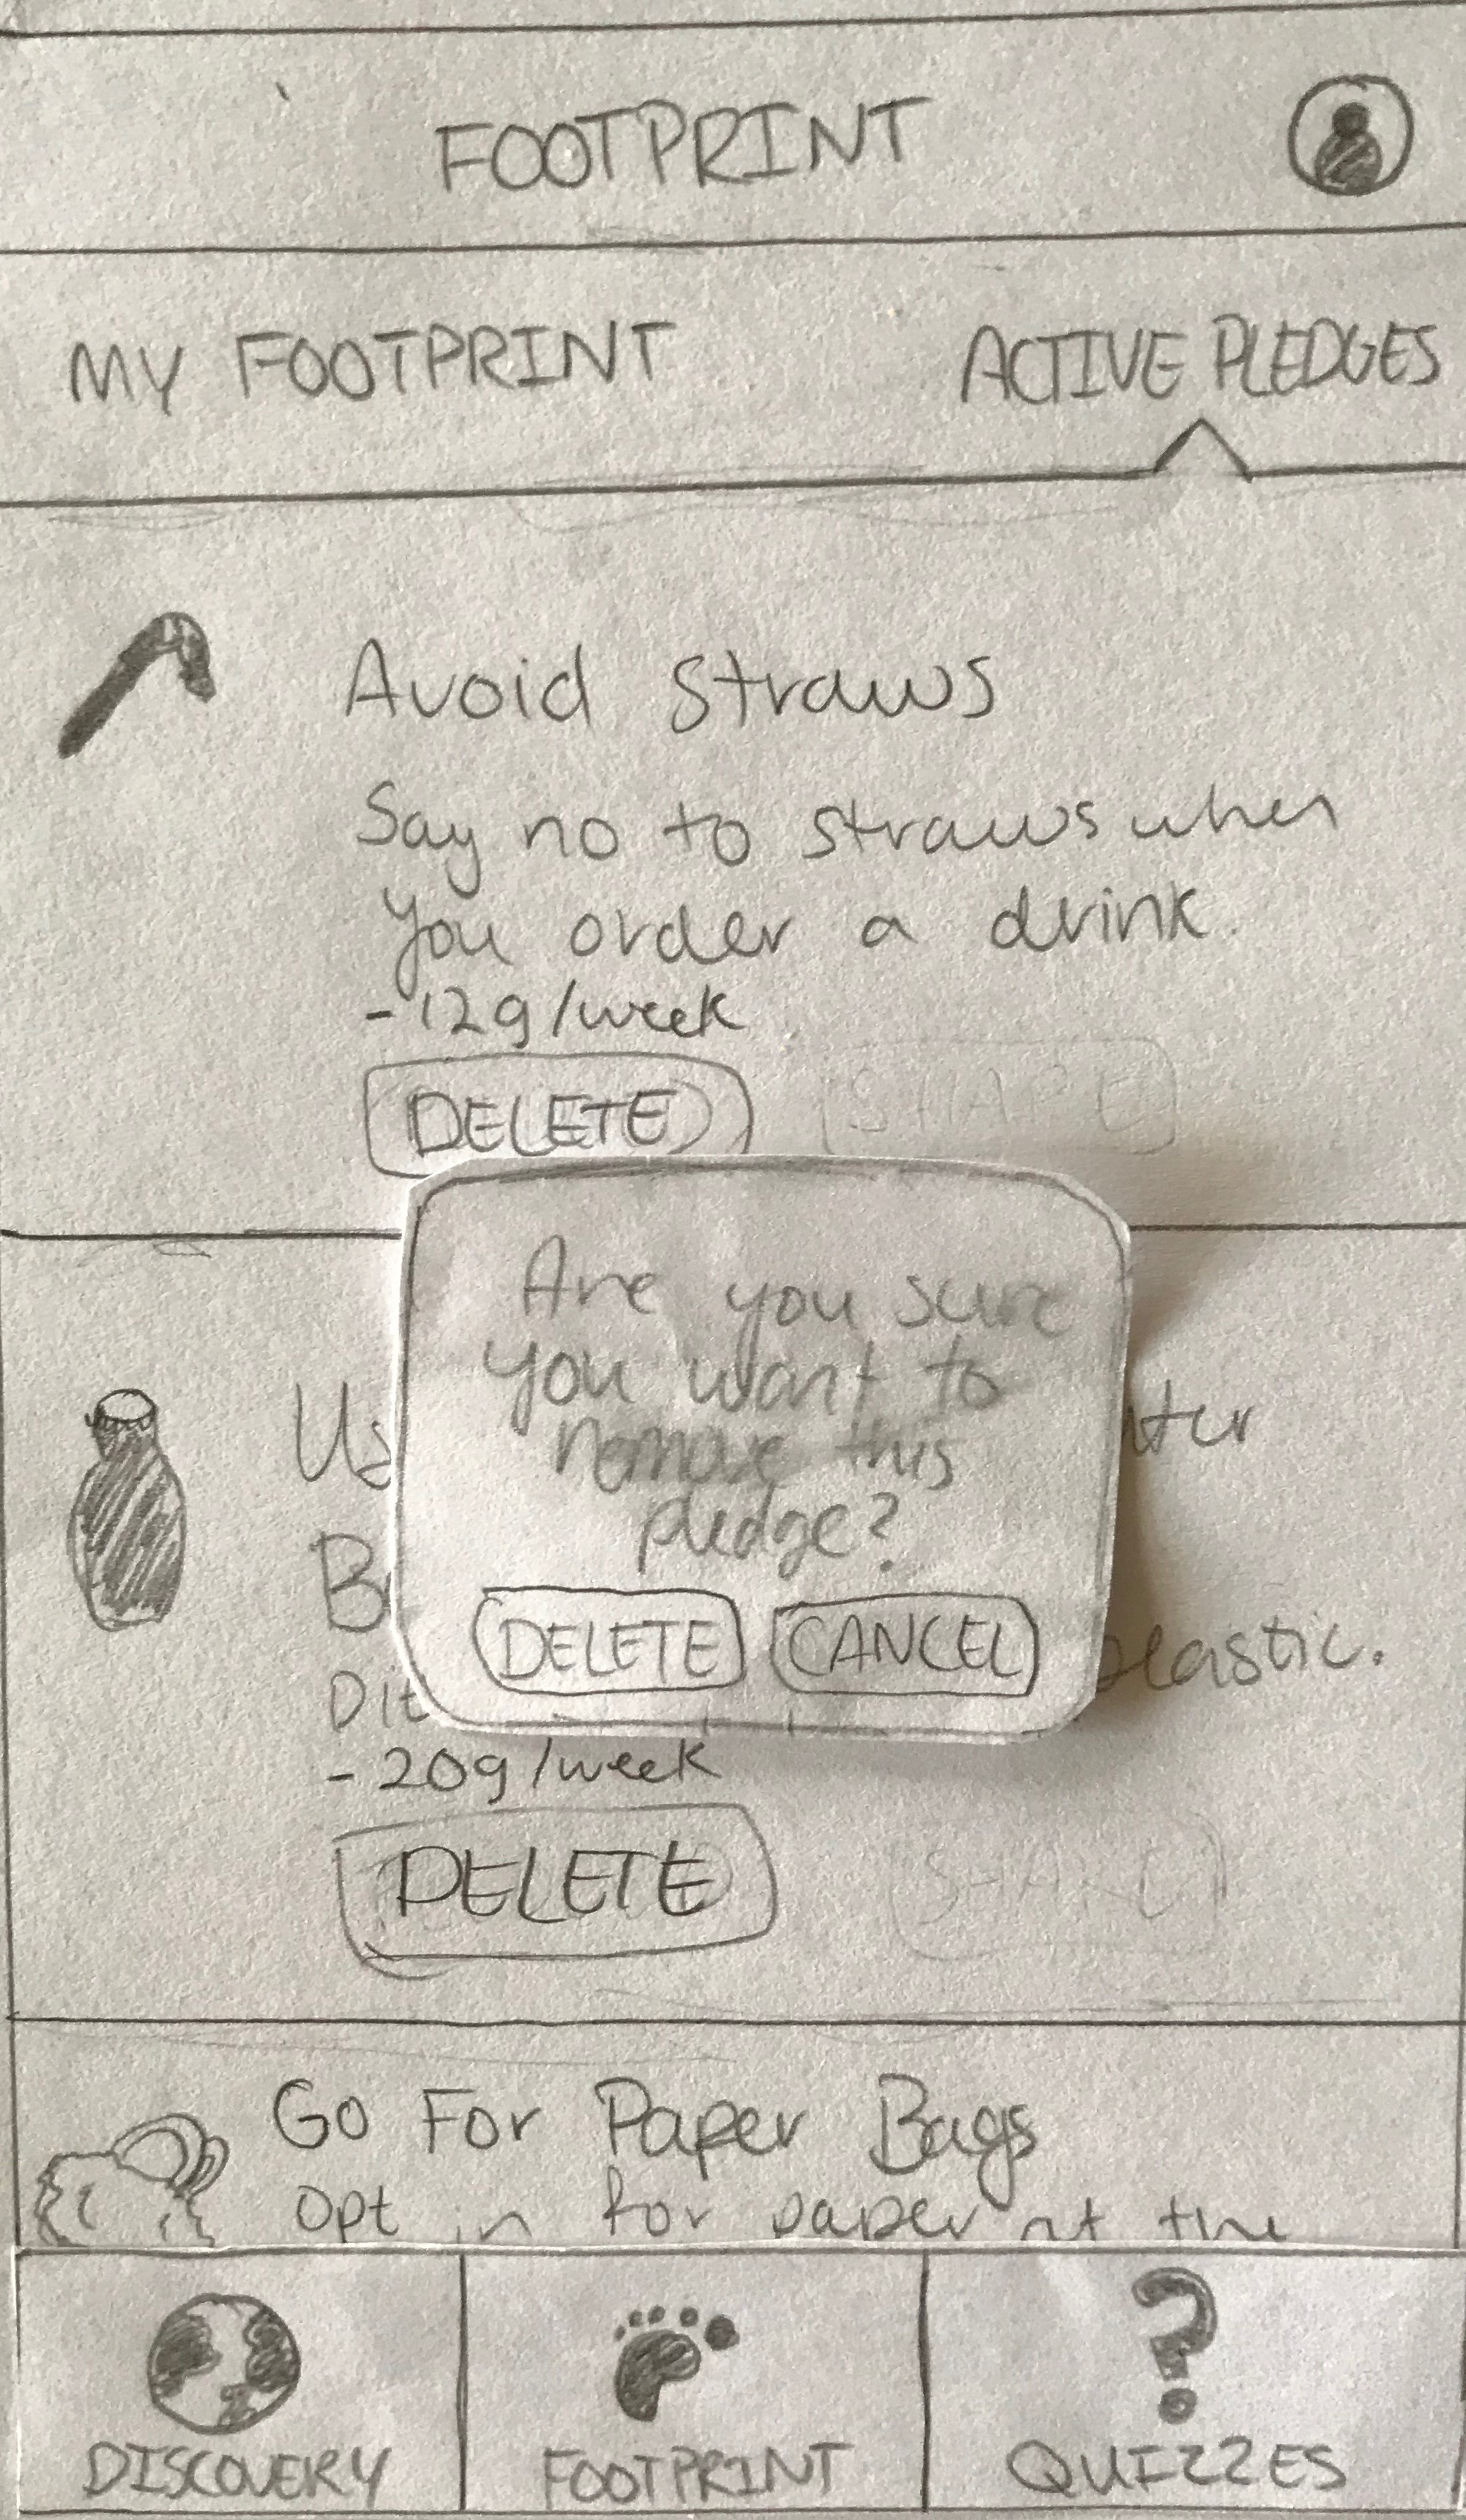 FOOTPRINT
MY FOOTPRINT ACTIVE PLEDGES
Avoid straws
Say no to straws when
you order a drink.
-12g/week
DELETE SHARE
Are you sure
you want to
remove this
pledge?
DELETE CANCEL
plastic.
-20g/week
DELETE SHARE
Go For Paper Bags
Opt in for paper at the
DISCOVERY FOOTPRINT QUIZZES